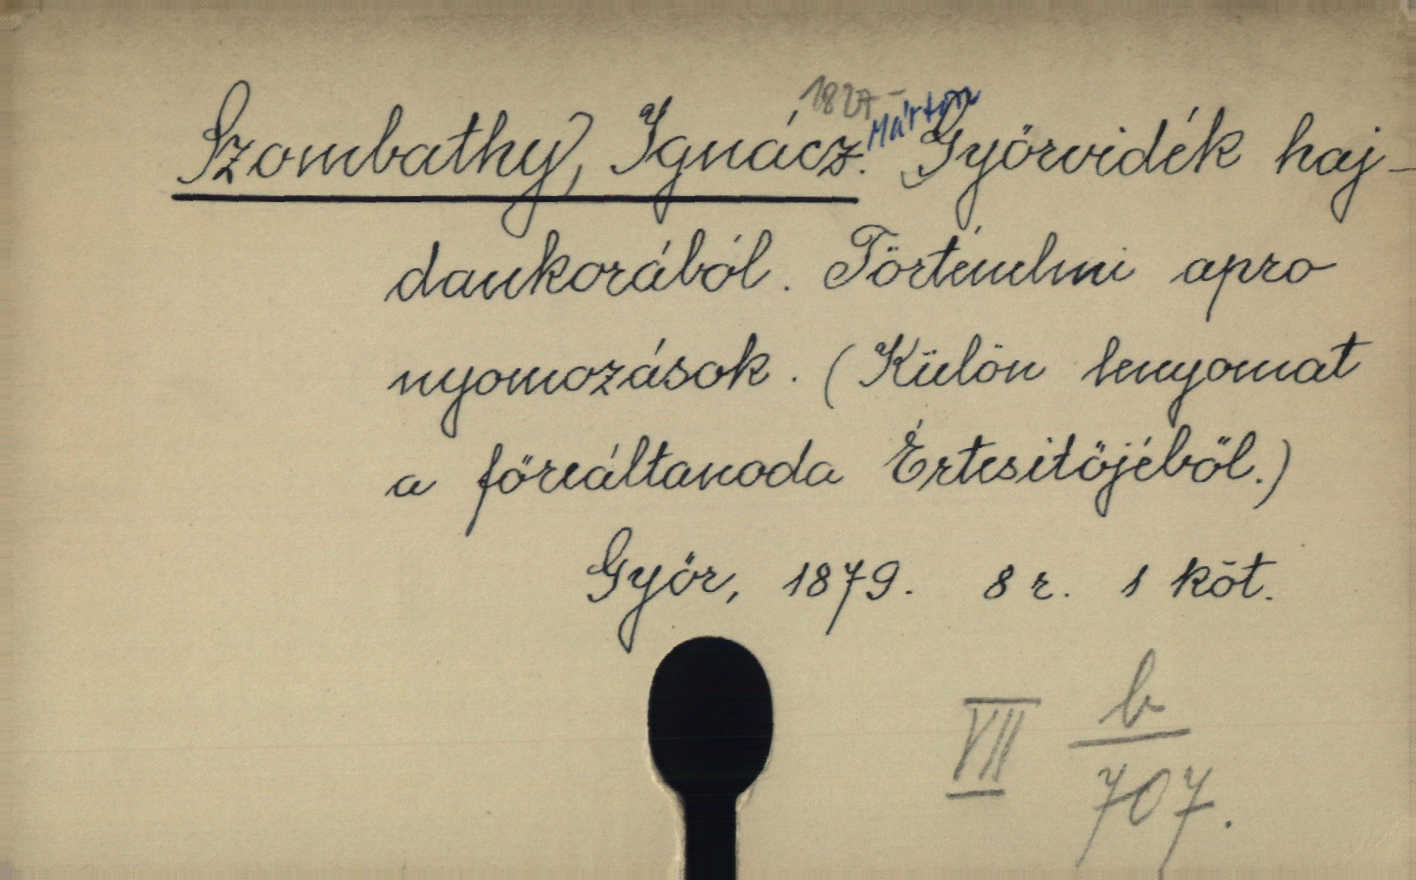 1827-
Márton
Szombathy, Ignácz. Györvidék haj-
dankorából. Történelmi apro
nyomozások. (Külön lenyomat
a főreáltanoda Értesitőjéből.)
Győr, 1879. 8 r. 1 köt.
VII b
707.